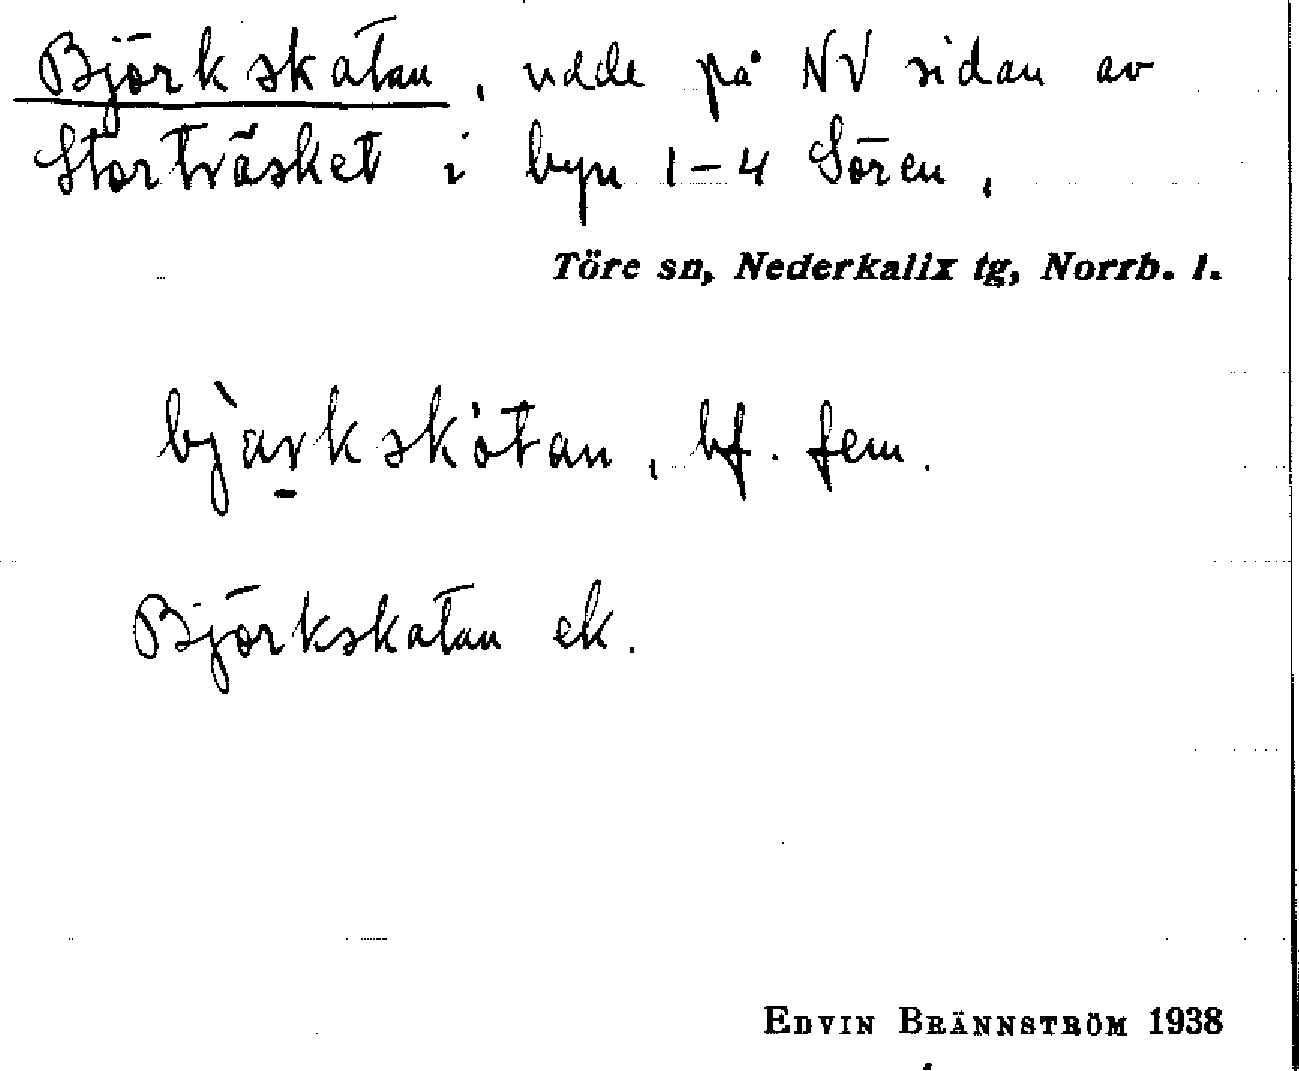 Björkskatan, udde på NV sidan av
Storträsket i byn 1-4 Sören.
Töre sn, Nederkalix tg, Norrb. l.
bjàr̠kskȧtan, bf. fem.
Björkskatan ek.
EDVIN BRÄNNSTRÖM 1938